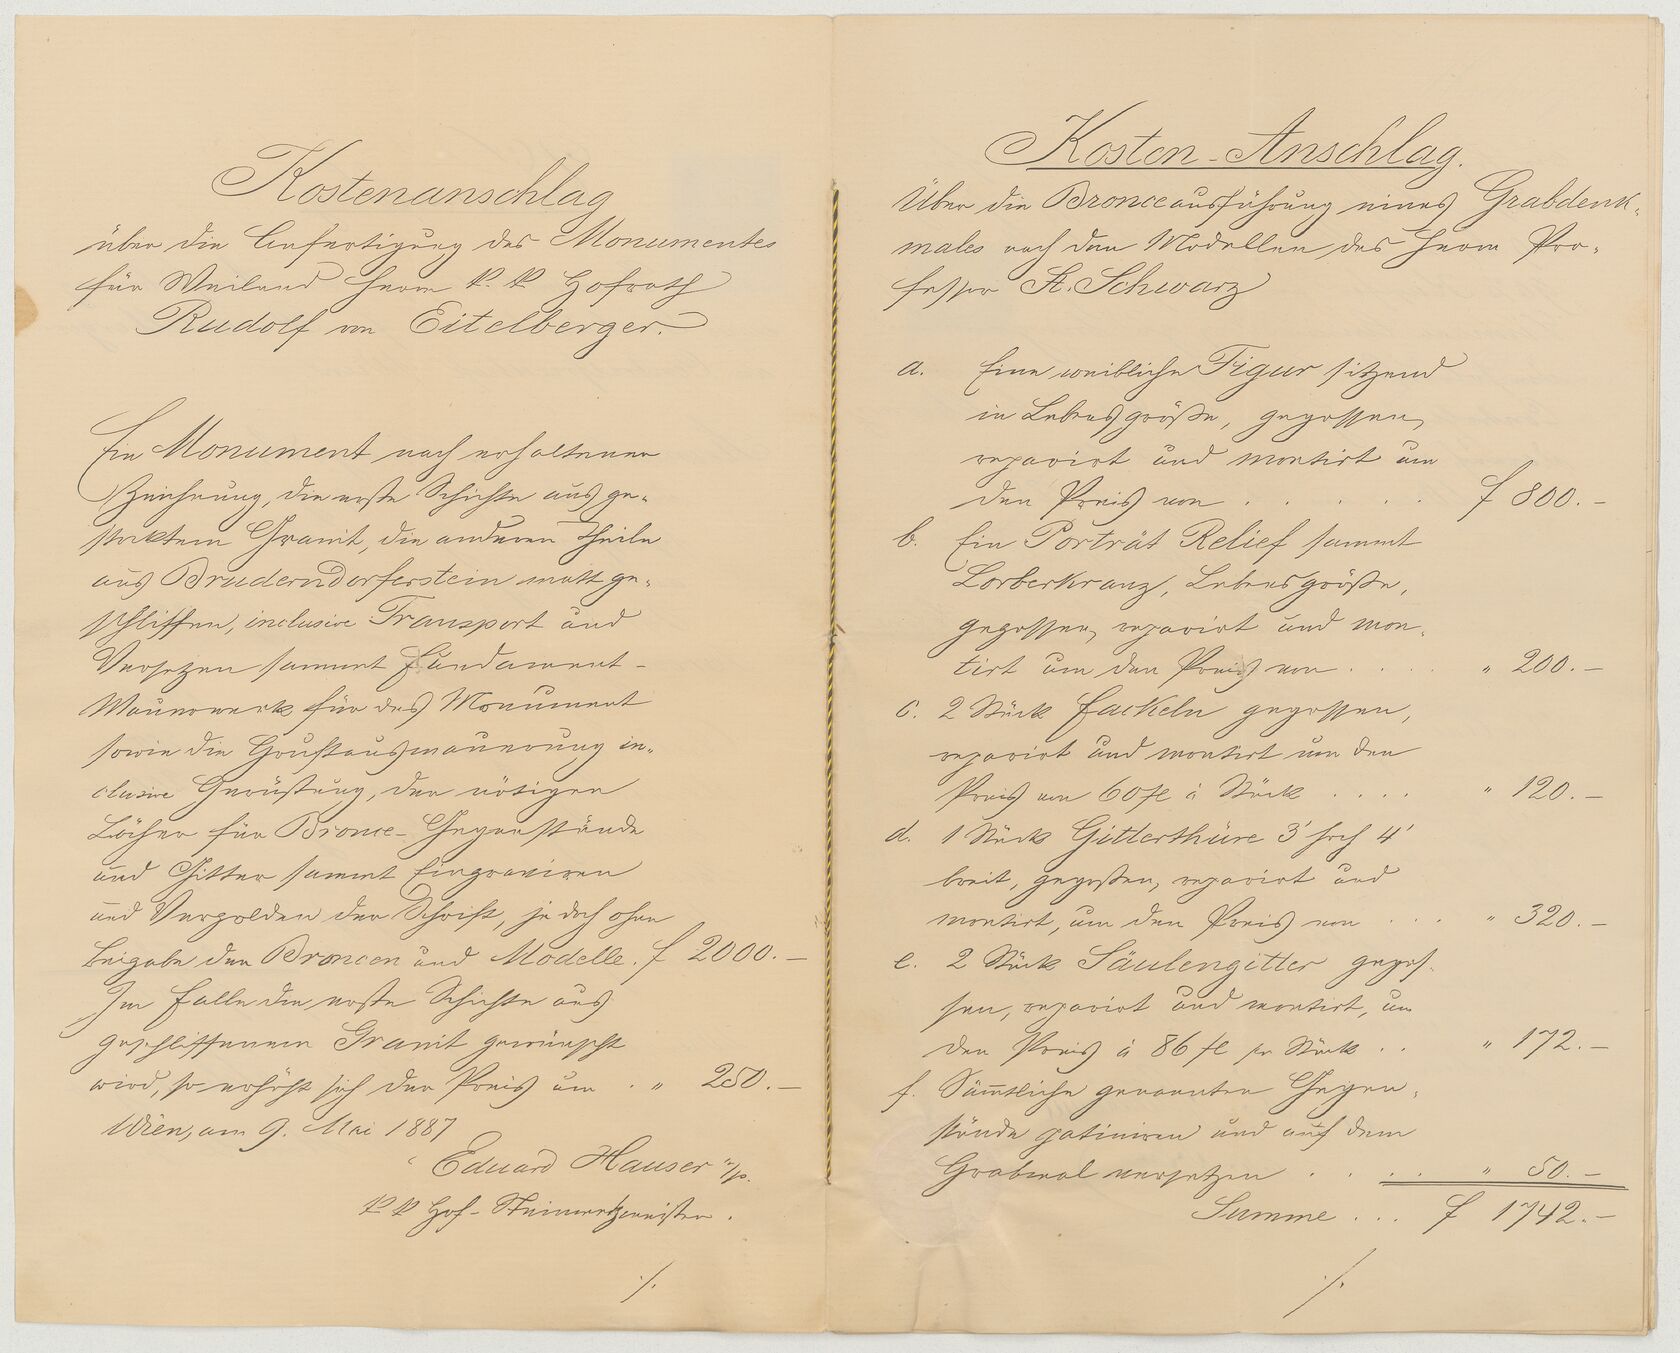 Kostenanschlag
über die Anfertigung des Monumentes
für Weiland Herrn k. k. Hofrath
Rudolf von Eitelberger.
Ein Monument nach erhaltener
Zeichnung, die erste Schichte aus ge-
stocktem Granit, die anderen Theile
aus Bruderndorferstein matt ge-
schliffen, inclusive Transport und
Versetzen sammt Fundament-
Mauerwerk für das Monument
sowie die Gruftausmauerung in-
clusive Gerüstung, der nötigen
Löcher für Bronce-Gegenstände
und Gitter sammt Eingraviren
und Vergolden der Schrift, jedoch ohne
Beigabe der Broncen und Modelle. f 2000.–
Im Falle die erste Schichte aus
geschliffenem Granit gewünscht
wird, so erhöht sich der Preis um . „ 250.–
Wien, am 9. Mai 1887
Eduard Hauser m/p.
k k Hof-Steinmetzmeister.
./.
Kosten-Anschlag.
Über die Bronceausführung eines Grabdenk-
males nach den Modellen des Herrn Pro-
fessor St. Schwarz
a. Eine weibliche Figur sitzend
in Lebensgröße, gegossen,
reparirt und montirt um
den Preis von . . . . . f 800.–
b. Ein Porträt Relief sammt
Lorberkranz, Lebensgröße,
gegossen, reparirt und mon-
tirt um den Preis von . . . . „ 200.–
c. 2 Stück Fackeln gegossen,
reparirt und montirt um den
Preis von 60 fl à Stück . . . . „ 120.–
d. 1 Stück Gitterthüre 3' hoch 4'
breit, gegoßen, reparirt und
montirt, um den Preis von . . . „ 320.–
e. 2 Stück Säulengitter gegos-
sen, reparirt und montirt, um
den Preis à 86 fl pr Stück . . „ 172.–
f. Sämtliche genannten Gegen-
stände patiniren und auf dem
Grabmal versetzen . . . . „ 50.–
Summe . . . f 1742.–
./.